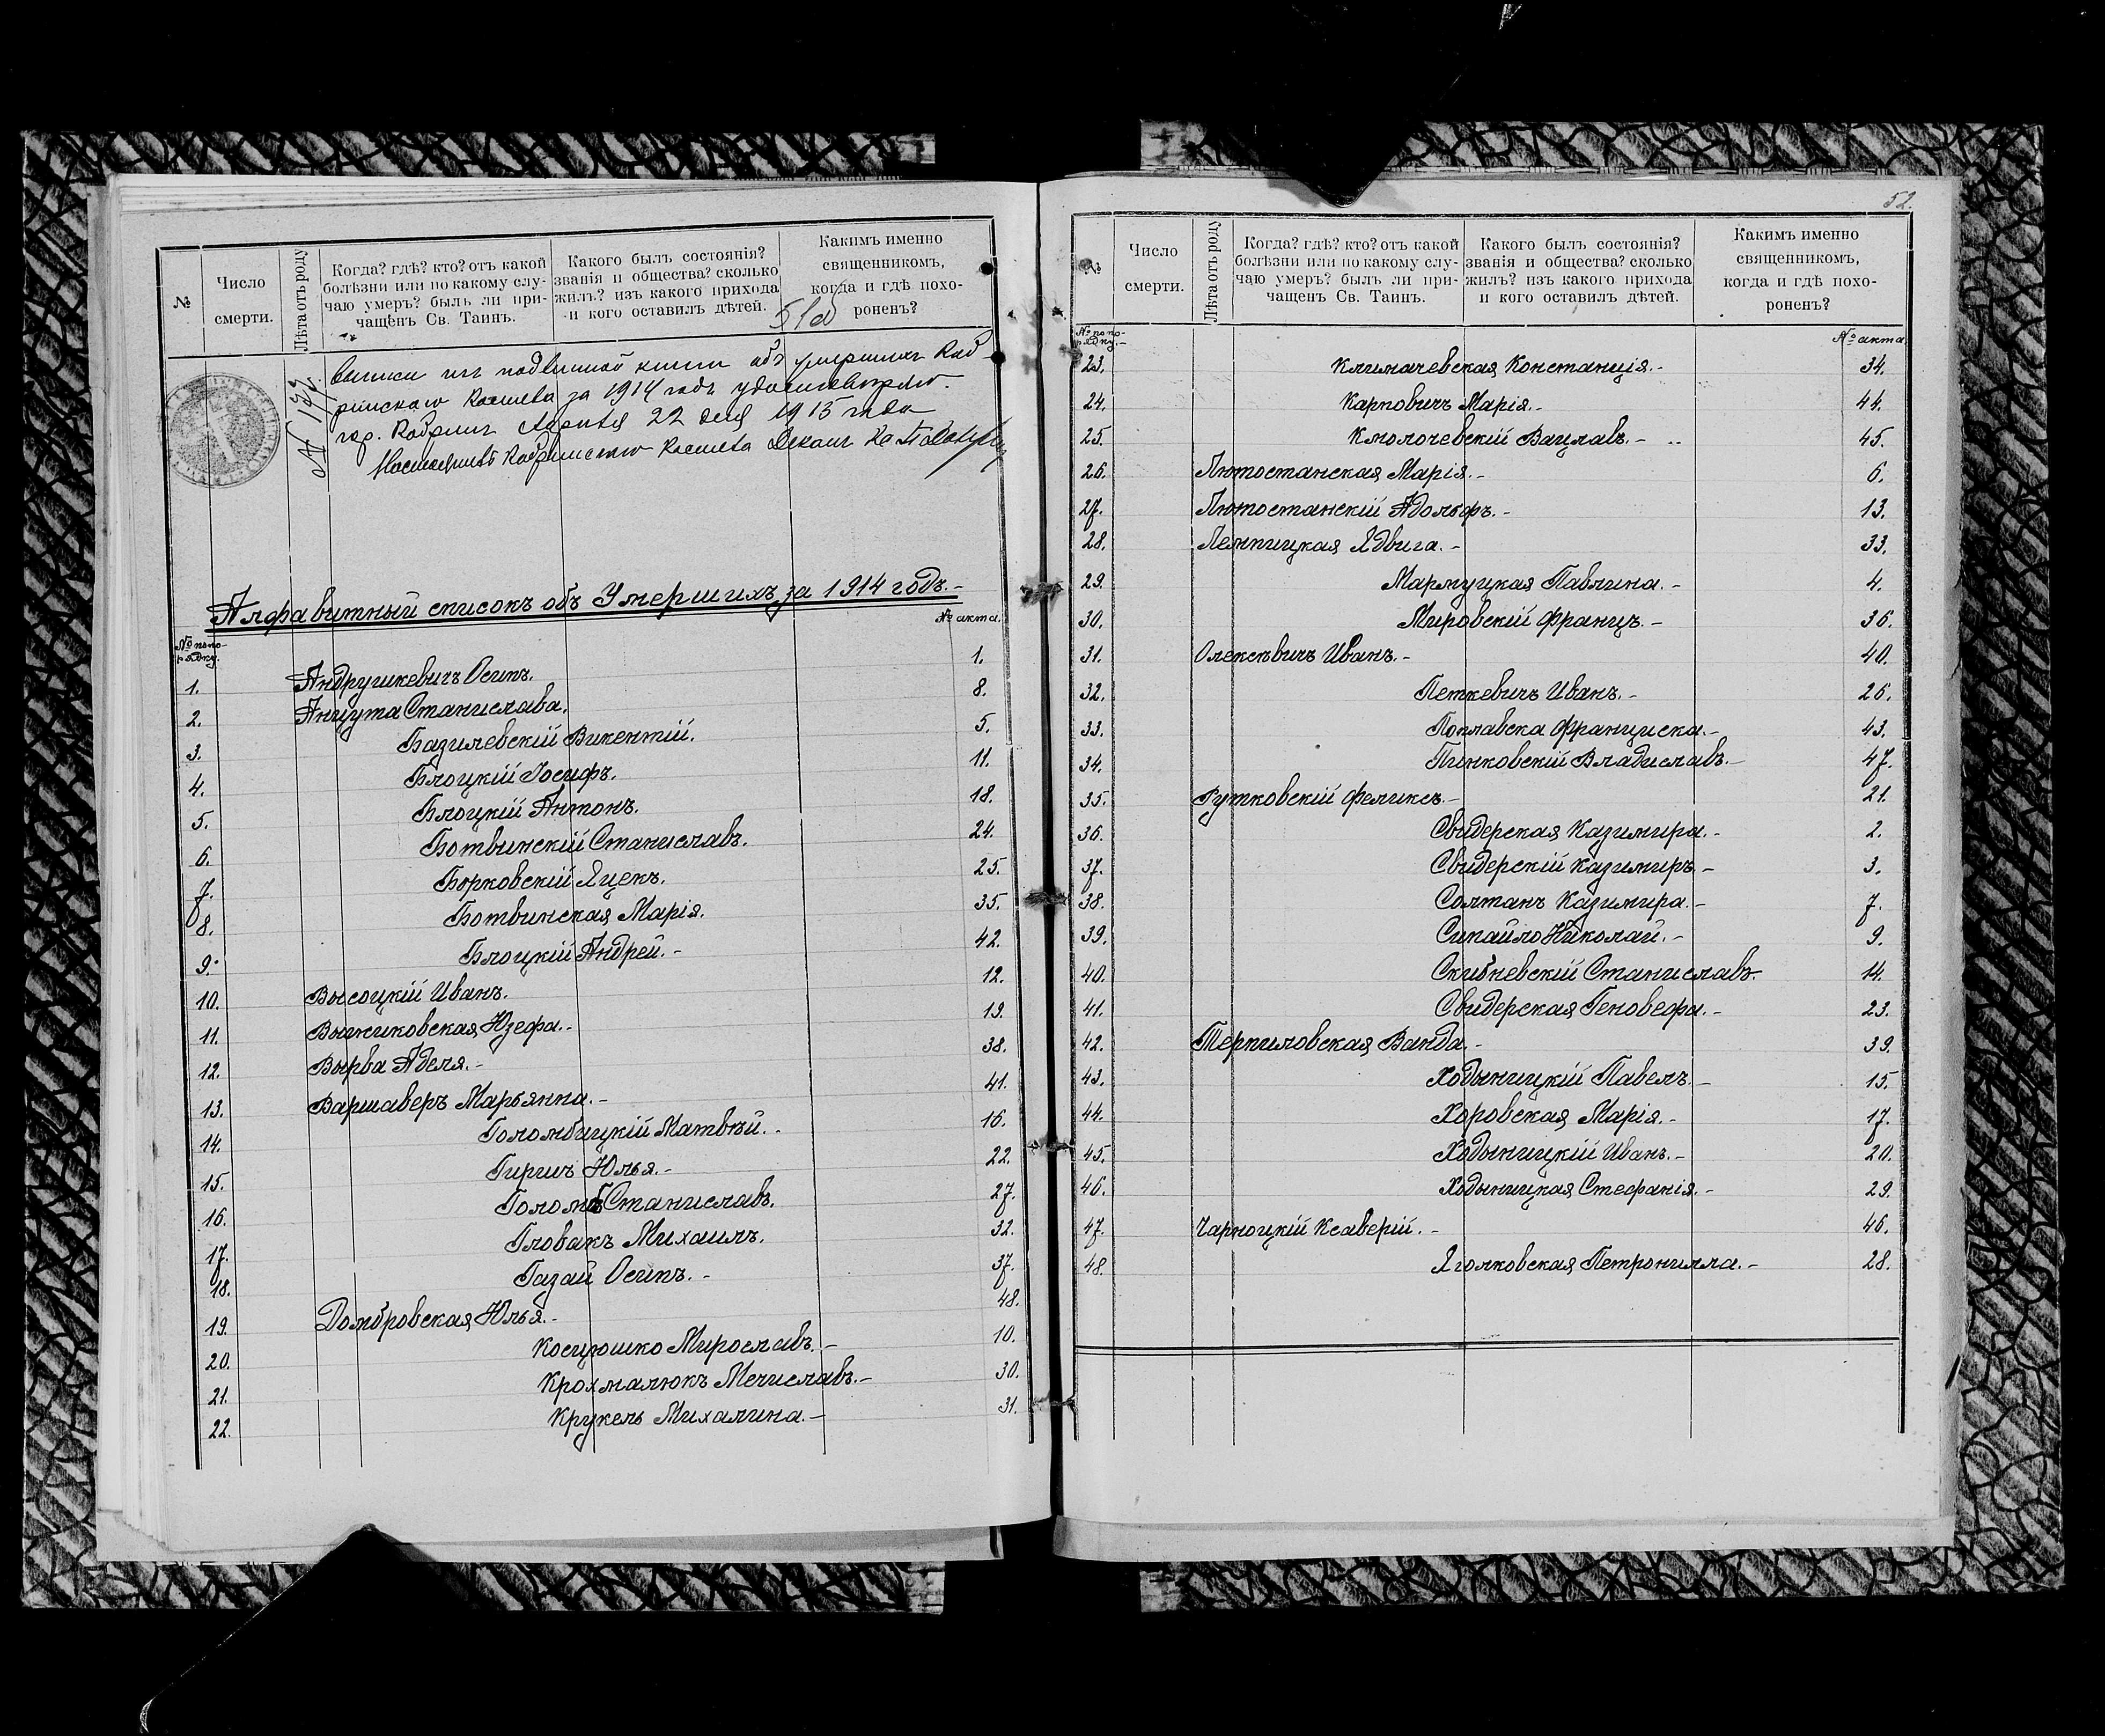 №
Число смерти.
Лѣта отъ роду
Когда? гдѣ? кто? отъ какой
болѣзни или по какому слу-
чаю умеръ? былъ ли при-
чащенъ Св. Таинъ.
Какого былъ состоянія?
званія и общества? сколько
жилъ? изъ какого прихода
и кого оставилъ дѣтей.
Какимъ именно
священникомъ,
когда и гдѣ похо-
роненъ?
51об
книги объ умершихъ Коб-
ринскаго Костела за 1914 годъ удостовѣряю.
гор. Кобринъ Апрѣля 22 дня 1915 года
Настоятель Кобринскаго Костела Деканъ
Алфавитный списокъ объ Умершихъ за 1914 годъ.-
№ попо-
рядку.
№ акта.
1. Андрушкевичъ Осипъ. 1.
2. Анцута Станислава. 8.
3. Базилевскій Викентій. 5.
4. Блоцкій Іосифъ. 11.
5. Блоцкій Антонъ. 18.
6. Ботвинскій Станиславъ. 24.
7. Борковскій Яцекъ. 25.
8. Ботвинская Марія. 35.
9. Блоцкій Андрей.- 42.
10. Высоцкій Иванъ. 12.
11. Вышиковская Юзефа.- 19.
12. Вырва Аделя.- 38.
13. Варшаверъ Марьянна.- 41.
14. Голомбицкій Матвѣй.- 16.
15. Гиргич Юлья.- 22.
16. Голомбъ Станиславъ. 27.
17. Гловакъ Михаилъ. 32.
18. Газай Осипъ.- 37.
19. Домбровская Юлья.- 48.
20. Косцюшко Мирославъ.- 10.
21. Крохмалюкъ Мечиславъ.- 30.
22. Крукель Михалина.- 31.
52.
№
Число смерти.
Лѣта отъ роду
Когда? гдѣ? кто? отъ какой
болѣзни или по какому слу-
чаю умеръ? былъ ли при-
чащенъ Св. Таинъ.
Какого былъ состоянія?
званія и общества? сколько
жилъ? изъ какого прихода
и кого оставилъ дѣтей.
Какимъ именно
священникомъ,
когда и гдѣ похо-
роненъ?
№ попо-
рядку.-
№ акта
23. Климачевская Констанція.- 34.
24. Карповичъ Марія.- 44.
25. Клюлочевскій Вацлавъ.- 45.
26. Лютостанская Марія.- 6.
27. Лютостанскій Адольфъ.- 13.
28. Лемпицкая Ядвига.- 33.
29. Мармуцкая Павлина.- 4.
30. Мировскій Францъ.- 36.
31. Олексѣвичъ Иванъ.- 40.
32. Петкевичъ Иванъ.- 26.
33. Поплавска Француска.- 43.
34. Пинковскій Владиславъ.- 47.
35. Рутковскій Феликсъ.- 21.
36. Свидерская Казимира.- 2.
37. Свидерскій Казимиръ.- 3.
38. Солтанъ Казимира.- 7.
39. Сипайло Николай.- 9.
40. Скибневскій Станиславъ. 14.
41. Свидерская Геновефа.- 23.
42. Терпиловская Ванда.- 39.
43. Ходыницкій Павелъ.- 15.
44. Хоровская Марія.- 17.
45. Ходыницкій Иванъ.- 20.
46. Ходыницкая Стефанія.- 29.
47. Чарноцкій Ксаверій.- 46.
48. Яголковская Петронилла.- 28.